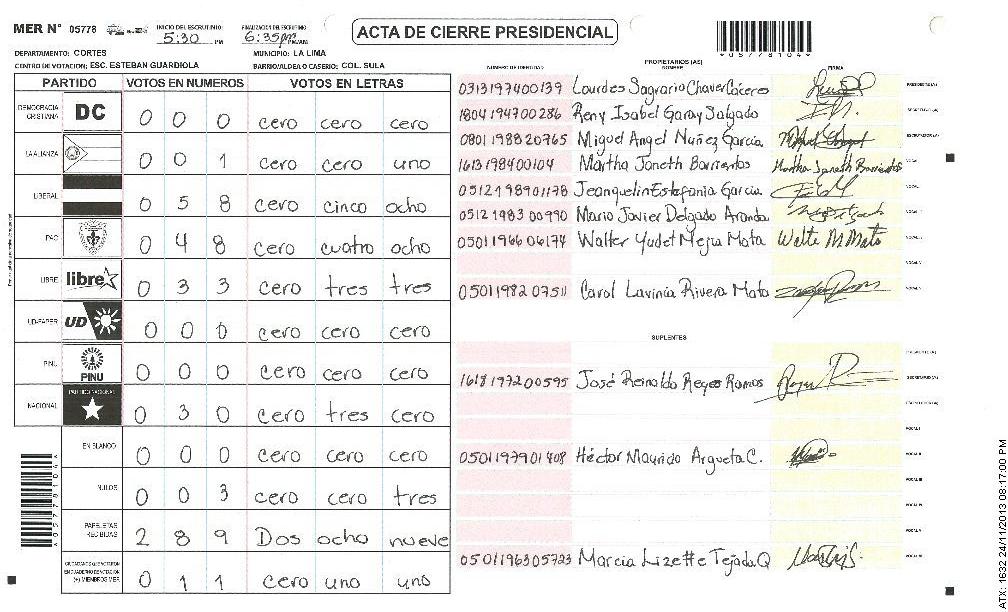 MER N° 05778
INICIO DEL ESCRUTINIO: 5:30 PM
FINALIZACION DEL ESCRUTINIO 6:35pm PM/AM
ACTA DE CIERRE PRESIDENCIAL
*05778104*
DEPARTAMENTO: CORTES
MUNICIPIO: LA LIMA
CENTRO DE VOTACION: ESC. ESTEBAN GUARDIOLA
BARRIO/ALDEA O CASERIO: COL. SULA
PARTIDO VOTOS EN NUMEROS VOTOS EN LETRAS
DEMOCRACIA CRISTIANA DC 0 0 0 cero cero cero
LA ALIANZA 0 0 1 cero cero uno
LIBERAL 0 5 8 cero cinco ocho
PAC 0 4 8 cero cuatro ocho
LIBRE libre 0 3 3 cero tres tres
UD-FAPER UD 0 0 0 cero cero cero
PINU PINU 0 0 0 cero cero cero
NACIONAL PARTIDO NACIONAL 0 3 0 cero tres cero
EN BLANCO 0 0 0 cero cero cero
NULOS 0 0 3 cero cero tres
PAPELETAS RECIBIDAS 2 8 9 Dos ocho nueve
CIUDADANOS QUE VOTARON EN CUADERNO DE VOTACION (+) MIEMBROS MER 0 1 1 cero uno uno
NUMERO DE IDENTIDAD
PROPIETARIOS (AS)
NOMBRE
FIRMA
0313197400139 Lourdes Sagrario Chavez Cáceres PRESIDENTE (A)
1804194700286 Reny Isabel Garay Salgado SECRETARIO (A)
0801198820765 Miguel Angel Nuñez García ESCRUTADOR (A)
1613198400104 Martha Janeth Barrientos Martha Janeth Barrientos VOCAL I
0512198901178 Jeanquelin Estefania Garcia
0512198300990 Mario Javier Delgado Aranda
0501196606174 Walter Yudet Mejia Mata Walte M Mata
0501198207511 Carol Lavinia Rivera Mata
SUPLENTES
PRESIDENTE (A)
1618197200595 José Reinaldo Reyes Ramos SECRETARIO (A)
ESCRUTADOR (A)
VOCAL I
0501197901408 Héctor Mauricio Argueta C. VOCAL II
VOCAL III
VOCAL IV
VOCAL V
0501196305723 Marcia Lizette Tejada Q
*05778104*
ATX: 1632 24/11/2013 08:17:00 PM